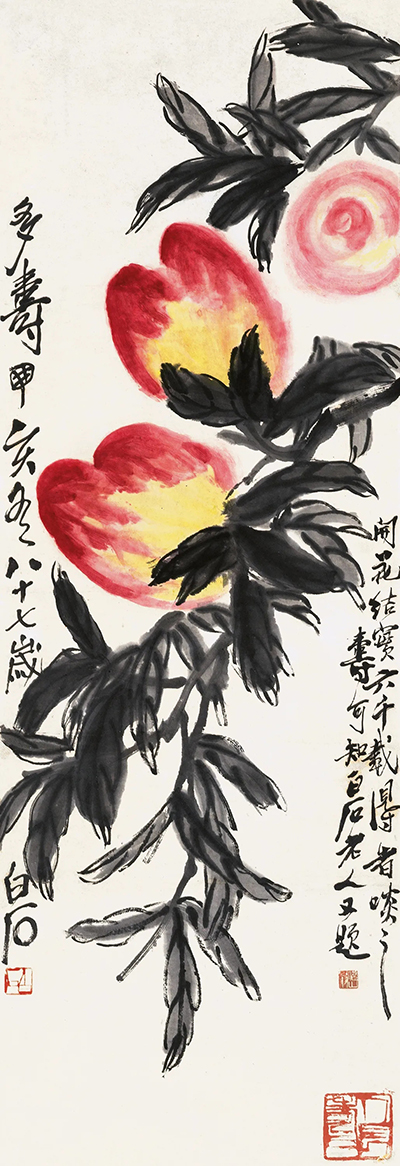 開花結實六千載得者啖之
壽可知白石老人又題
多壽甲亥冬八十七歲
白石